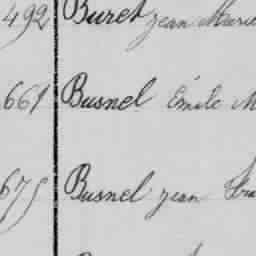 492 Buret jean Marie
661 Busnel Émile M
675 Busnel jean